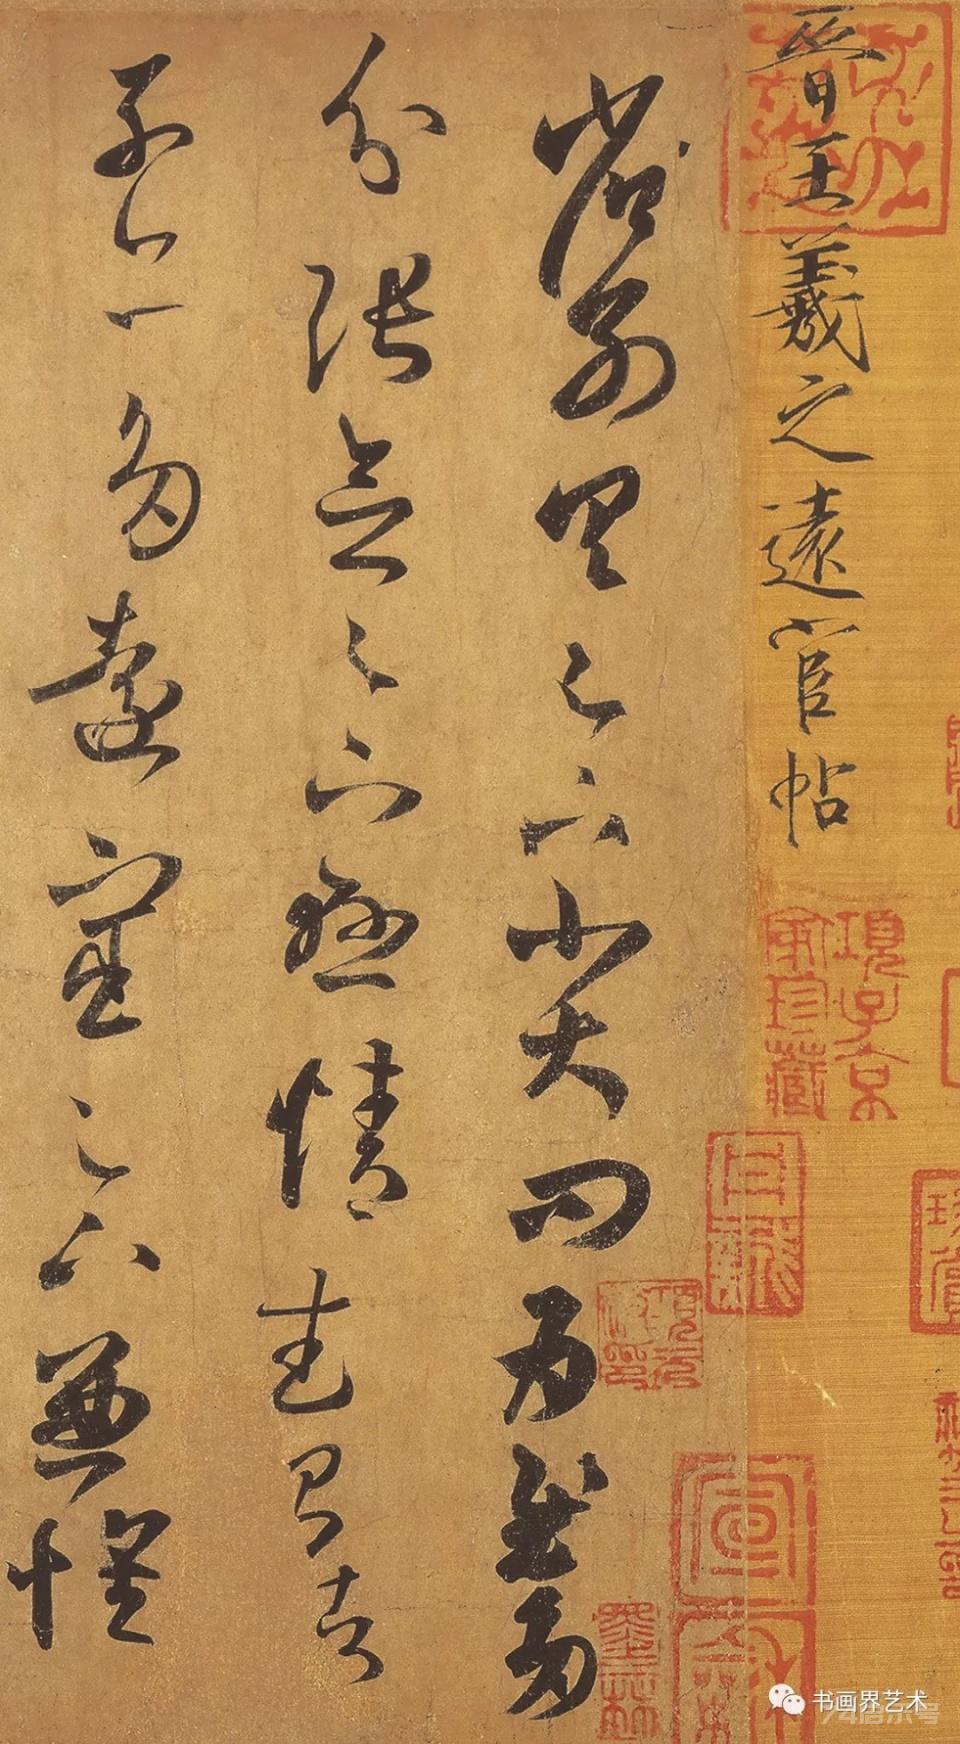 晉王羲之遠宦帖
省別具足下小大問為慰多
分張念足下懸情武昌諸
子亦多遠宦足下兼懷
項子京
家珍藏
墨林
书画界艺术